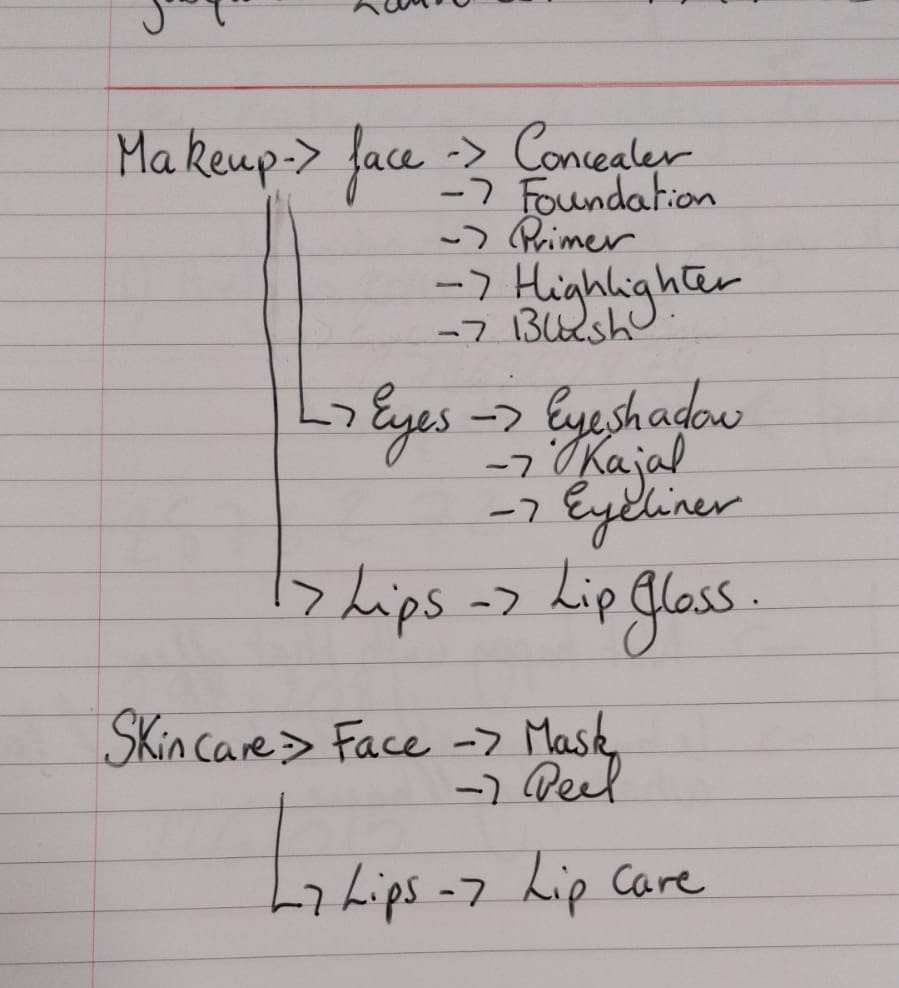 Makeup -> face -> Concealer
-> Foundation
-> Primer
-> Highlighter
-> Blush
-> Eyes -> Eyeshadow
-> Kajal
-> Eyeliner
-> Lips -> Lip gloss.
Skincare => Face -> Mask
-> Peel
-> Lips -> Lip care